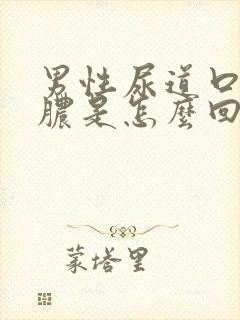 男性尿道口
膿是怎麼回
蒙塔里